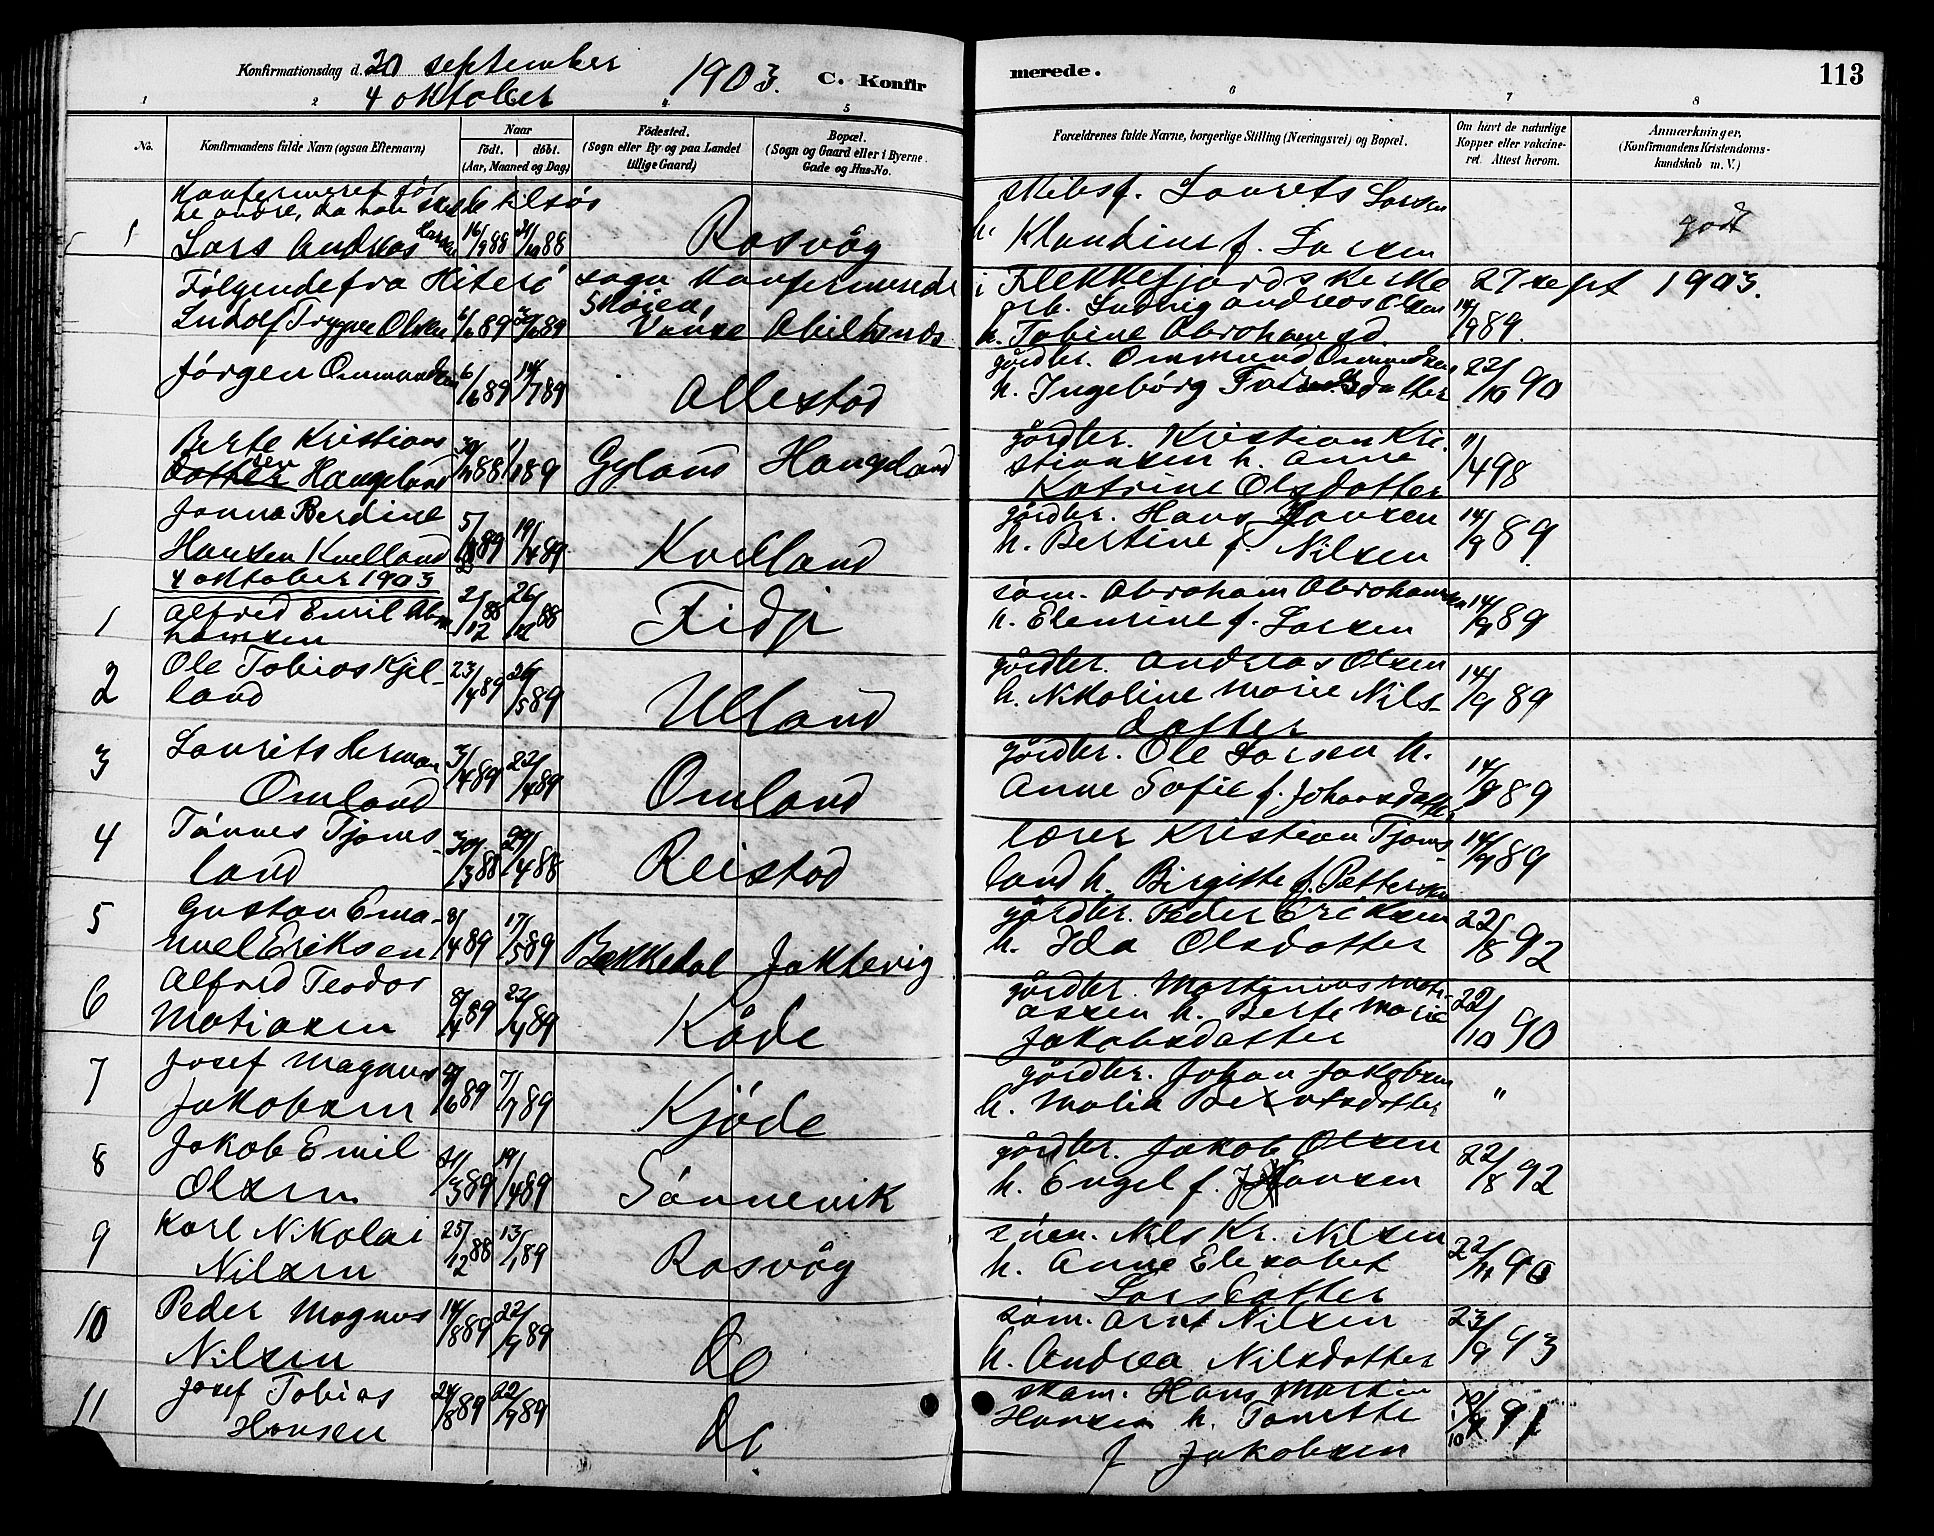 Konfirmationsdag d. 20 september
4 oktober
1903.
C. Konfirmerede.
113
1 2 3 4 5 6 7 8
No.
Konfirmandens fulde Navn (ogsaa Efternavn)
Naar
födt. döbt.
(Aar, Maaned og Dag)
Födested.
(Sogn eller By og paa Landet
tillige Gaard)
Bopæl.
(Sogn og Gaard eller i Byerne
Gade og Hus-No.
Forældrenes fulde Navne, borgerlige Stilling (Næringsvei) og Bopæl.
Om havt de naturlige
Kopper eller vakcine-
ret. Attest herom.
Anmærkninger,
(Konfirmandens Kristendoms-
kundskab m. V.)
Konfermeret før
de andre, da han skal tilsøs
1 Lars Andreas Larsen 16/9 88 88 Rasvåg
skibsf. Laurits Larsen
h. Klaudine f. Larsen
godt
Følgende fra Hiterø sogn konfermerede i Flekkefjords kerke 27 sept 1903.
Ludolf Trygve Olsen 6/6 89 89 Vanse Abelsnes
arb. Ludvig Andreas Olsen
h. Tobine Abrahamsd. 14/9 89.
Jørgen Ommundsen 6/6 89 14/7 89 Allestad
gårdbr. Ommund Ommundsen
h. Ingebørg datter 22/10 90
Berte Kristians
datter Haugeland 88 89 Gyland Haugeland
gårdbr. Kristian Kri-
stiansen h. Anne
Katrine Olsdatter 11/4 98
Janna Berdine
Hansen Kvelland 89 19/4 89 Kvelland
gårdbr. Hans Hansen
h. Bertine f. Nilsen 14/9 89.
4 oktober 1903
1 Alfred Emil Abra
hamsen 2/12 88 26/12 88 Fidje
søm. Abraham Abrahamsen
h. Elenrine f. Larsen 14/9 89
2 Ole Tobias Kjel-
land 23/4 89 26/5 89 Ulland
gårdbr. Andreas Olsen
h. Nikoline Marie Nils-
datter 14/9 89
3 Laurits Herman
Omland 3/4 89 22/4 89 Omland
gårdbr. Ole Larsen h.
Anne Sofie f. Johansdatter 14/9 89
4 Tønnes Tjoms-
land 30/3 88 29/4 88 Reistad
lærer Kristian Tjoms-
land h. Birgitte f. Pettersen 14/9 89
5 Gustav Ema-
nuel Eriksen 8/4 89 17/5 89 Bakkedal Jaktevig
gårdbr. Peder Eriksen
h. Ida Olsdatter 22/8 92
6 Alfred Teodor
Matiasen 8/4 89 22/4 89 Kåde
gårdbr. Martinius Mati-
assen h. Berte Marie
Jakobsdatter 22/10 90
7 Josef Magnus
Jakobsen 89 7/7 89 Kjøde
gårdbr. Johan Jakobsen
h. Malia Berntsdatter "
8 Jakob Emil
Olsen 21/3 89 19/4 89 Sånnevik
gårdbr. Jakob Olsen
h. Engel f. Hansen 22/8 92
9 Karl Nikolai
Nilsen 25/12 88 13/1 89 Rasvåg
søm. Nils Kr. Nilsen
h. Anne Elesabet
Larsdatter 90
10 Peder Magnus
Nilsen 14/8 89 22/9 89 Do
søm. Arnt Nilsen
h. Andrea Nilsdatter 23/9 93
11 Josef Tobias
Hansen 24/8 89 22/9 89 Do
skom. Hans Martin
Hansen h. Tomette
f Jakobsen 91